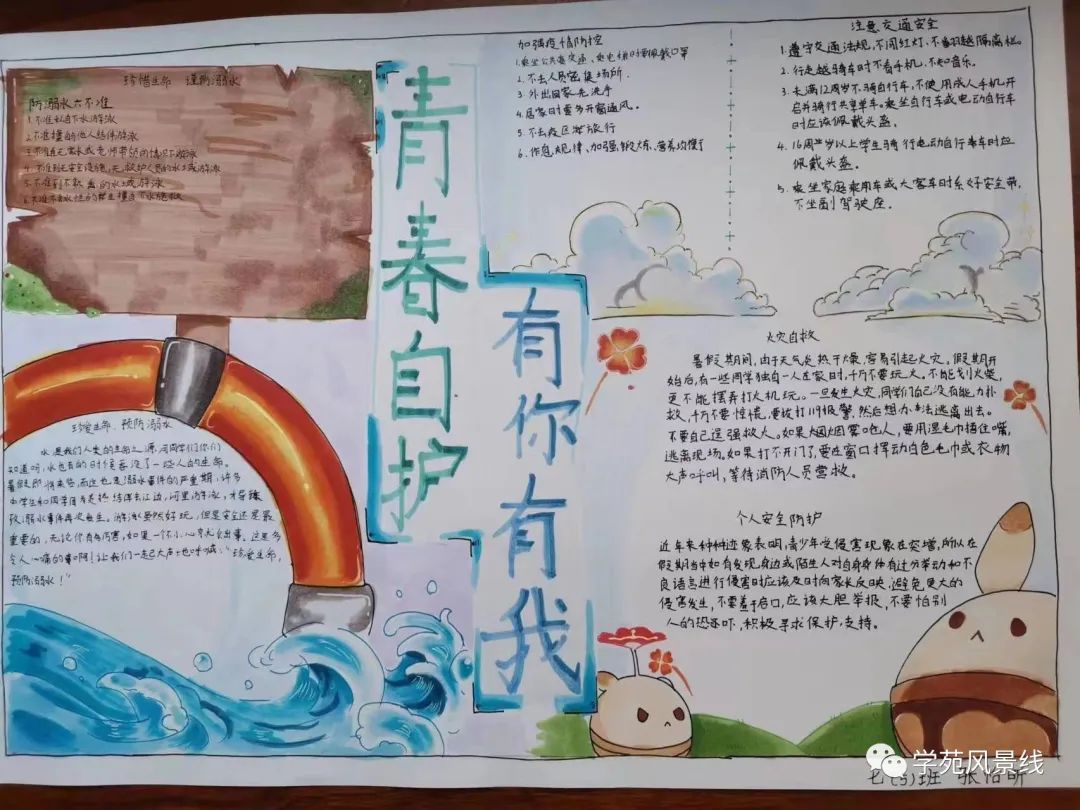 珍惜生命 谨防溺水
防溺水六不准
1.不准私自下水游泳
2.不准擅自与他人结伴游泳
5.不准到不熟悉的水域游泳
青春自护
有你有我
加强疫情防控
2.不去人员密集场所.
3.外出回家先洗手
4.居家时要多开窗通风.
5.不去疫区旅行
6.作息规律,加强锻炼、营养均衡
注意交通安全
1.遵守交通法规,不闯红灯、不翻越隔离栏。
2.行走越骑车时不看手机,不听音乐。
3.未满12周岁不骑自行车,不使用成人手机开
启并骑行共享单车。乘坐自行车或电动自行车
时应该佩戴头盔。
4.16周岁以上学生骑行电动自行车时应
佩戴头盔。
5.乘坐家庭乘用车或大客车时系好安全带,
不坐副驾驶座.
火灾自救
暑假期间,由于天气炎热干燥,容易引起火灾。假期开
始后,有一些同学独自一人在家时,千万不要玩火。不能划火柴,
更不能摆弄打火机玩。一旦发生火灾,同学们自己没有能力扑
救,千万不要惊慌,要拨打119报警,然后想办法逃离出去。
不要自己逞强救火。如果烟烟雾呛人,要用湿毛巾捂住嘴,
逃离现场。如果打不开门,要在窗口挥动白色毛巾或衣物
大声呼叫,等待消防人员营救。
个人安全防护
近年来种种迹象表明,青少年受侵害现象在突增,所以在
假期当中如有发现身边或陌生人对自身身体有过分举动和不
良语言进行侵害时应该及时向家长反映.避免更大的
侵害发生,不要羞于启口,应该大胆举报,不要怕别
人的恐吓,积极寻求保护,支持。
珍爱生命、预防溺水
水是我们人类的生命之源,可同学们你们
知道吗,水也有的时候吞没了一些人的生命。
暑假即将来临,而这也是溺水事件的严重期,许多
致溺水事件再次发生。游泳虽然好玩,但是安全还是最
重要的,无论你有多厉害,如果一个不小心夺就会出事。这是多
令人心痛的事啊!让我们一起大声地呼喊:“珍爱生命,
预防溺水!”
七(3)班
学苑风景线